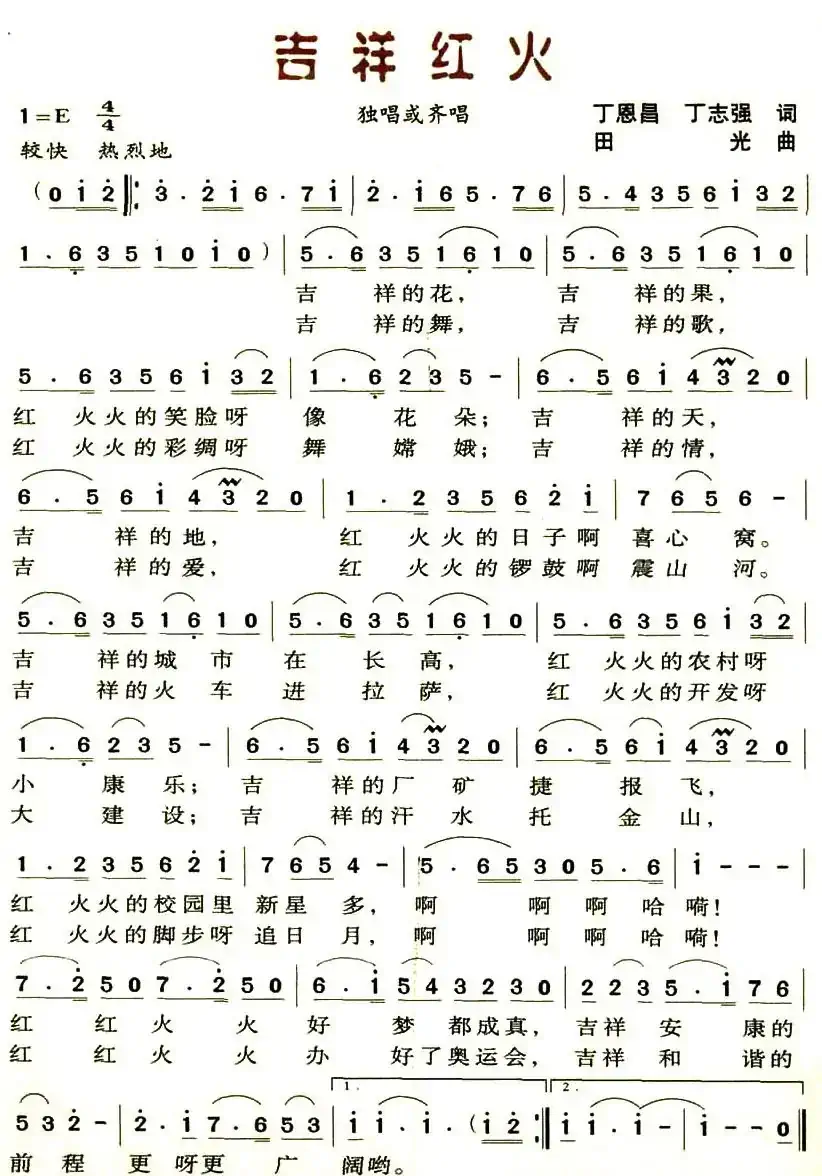 吉祥红火
1=E 4/4 独唱或齐唱 丁恩昌 丁志强 词
较快 热烈地 田光 曲
(0 i 2 ‖: 3 · 2 i 6 · 7 i | 2 · i 6 5 · 7 6 | 5 · 4 3 5 6 i 3 2 |
1 · 6 3 5 1 0 i 0 ) | 5 · 6 3 5 1 6 1 0 | 5 · 6 3 5 1 6 1 0 |
吉 祥的花, 吉 祥的果,
吉 祥的舞, 吉 祥的歌,
5 · 6 3 5 6 i 3 2 | 1 · 6 2 3 5 - | 6 · 5 6 i 4 3 2 0 |
红 火火的笑脸呀 像 花 朵; 吉 祥的天,
红 火火的彩绸呀 舞 嫦 娥; 吉 祥的情,
6 · 5 6 i 4 3 2 0 | 1 · 2 3 5 6 2 i | 7 6 5 6 - |
吉 祥的地, 红 火火的日子啊 喜心 窝。
吉 祥的爱, 红 火火的锣鼓啊 震山 河。
5 · 6 3 5 1 6 1 0 | 5 · 6 3 5 1 6 1 0 | 5 · 6 3 5 6 i 3 2 |
吉 祥的城 市 在 长 高, 红 火火的农村呀
吉 祥的火 车 进 拉 萨, 红 火火的开发呀
1 · 6 2 3 5 - | 6 · 5 6 i 4 3 2 0 | 6 · 5 6 i 4 3 2 0 |
小 康 乐; 吉 祥的厂 矿 捷 报 飞,
大 建 设; 吉 祥的汗 水 托 金 山,
1 · 2 3 5 6 2 i | 7 6 5 4 - | 5 · 6 5 3 0 5 · 6 | i - - - |
红 火火的校园里 新星 多, 啊 啊 啊 哈 嗬!
红 火火的脚步呀 追日 月, 啊 啊 啊 哈 嗬!
7 · 2 5 0 7 · 2 5 0 | 6 · i 5 4 3 2 3 0 | 2 2 3 5 · i 7 6 |
红 红 火 火 好 梦 都成真, 吉祥 安 康的
红 红 火 火 办 好了奥运会, 吉祥 和 谐的
5 3 2 - | 2 · i 7 · 6 5 3 | 1. i i · i · (i 2 :‖ 2. i i · i - | i - - 0 ‖
前 程 更 呀更 广 阔哟。